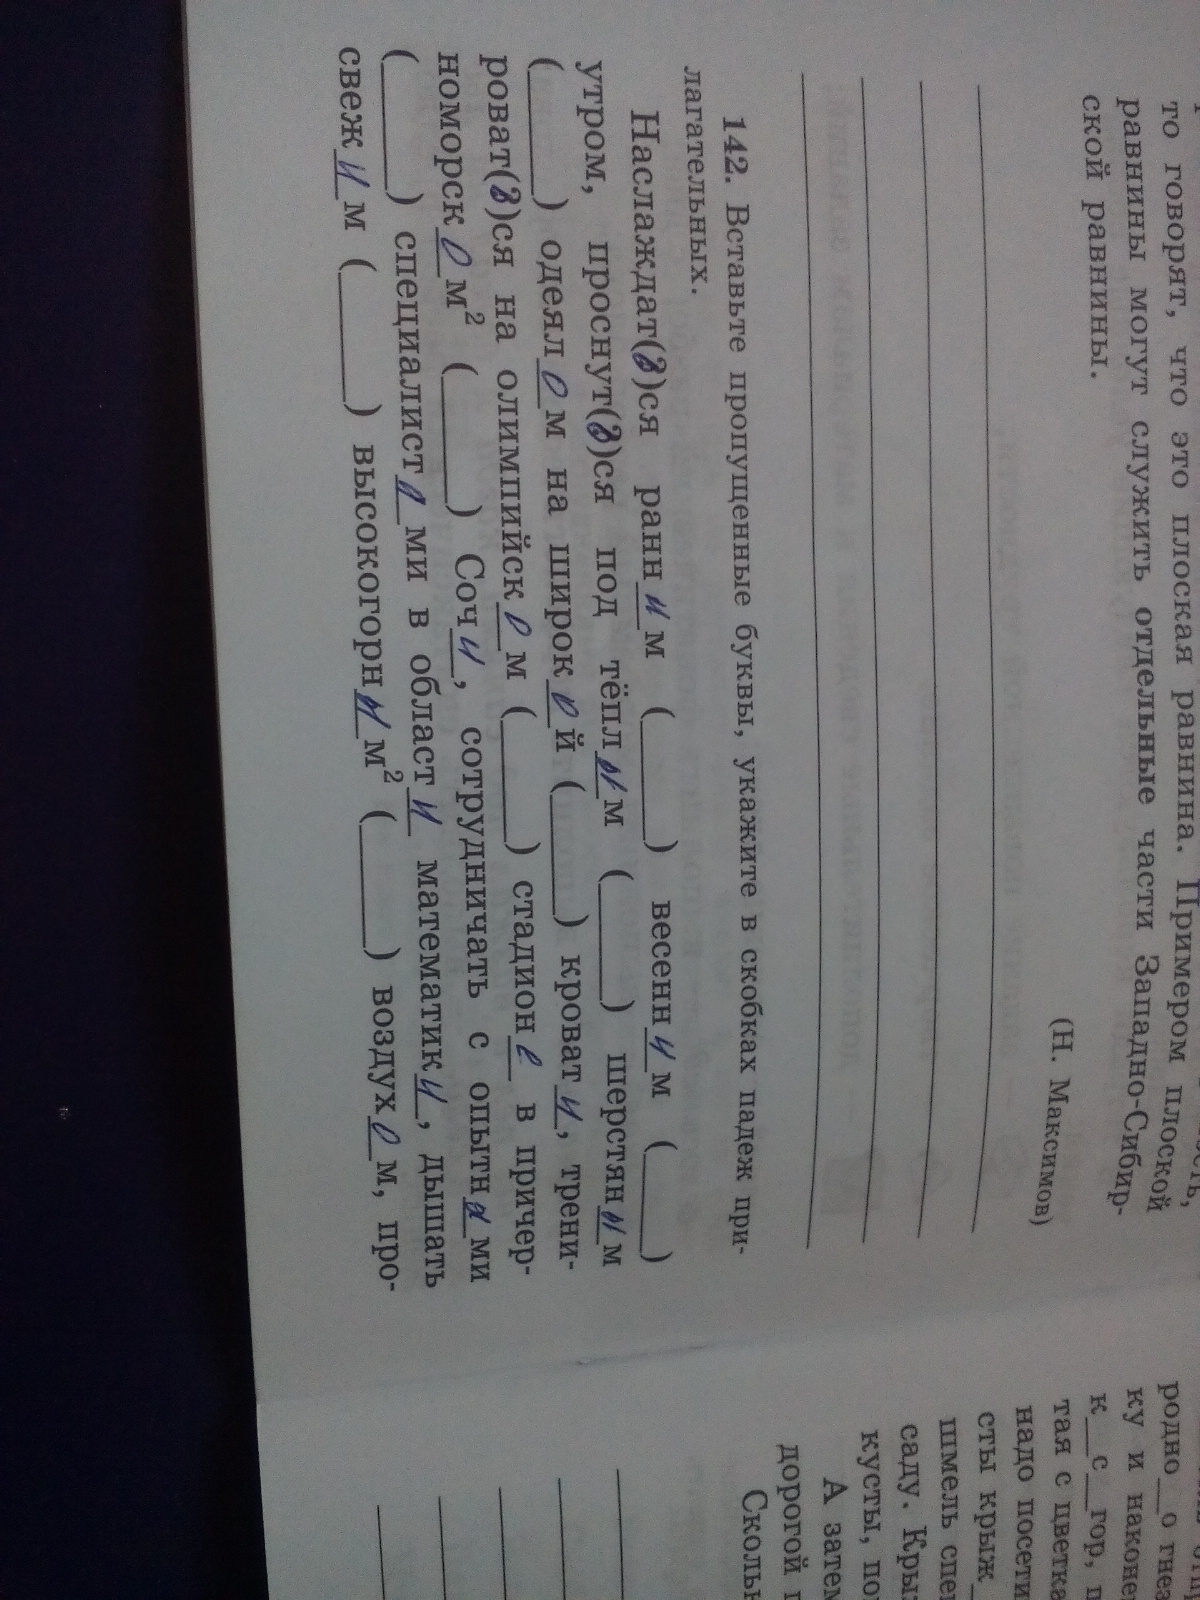 то говорят, что это плоская равнина. Примером плоской
равнины могут служить отдельные части Западно-Сибир-
ской равнины.
(Н. Максимов)
142. Вставьте пропущенные буквы, укажите в скобках падеж при-
лагательных.
Наслаждат(ь)ся ранн_и_м (____) весенн_и_м (____)
утром, проснут(ь)ся под тёпл_ы_м (____) шерстян_ы_м
(____) одеял_о_м на широк_о_й (____) кроват_и_, трени-
роват(ь)ся на олимпийск_о_м (____) стадион_е_ в причер-
номорск_о_м² (____) Соч_и_, сотрудничать с опытн_ы_ми
(____) специалист_а_ми в област_и_ математик_и_, дышать
свеж_и_м (____) высокогорн_ы_м² (____) воздух_о_м, про-
родно__о гнез
ку и наконе
к__с__гор, п
тая с цветка
надо посети
сты крыж_
шмель спе
саду. Кры
кусты, по
А затем
дорогой п
Сколь